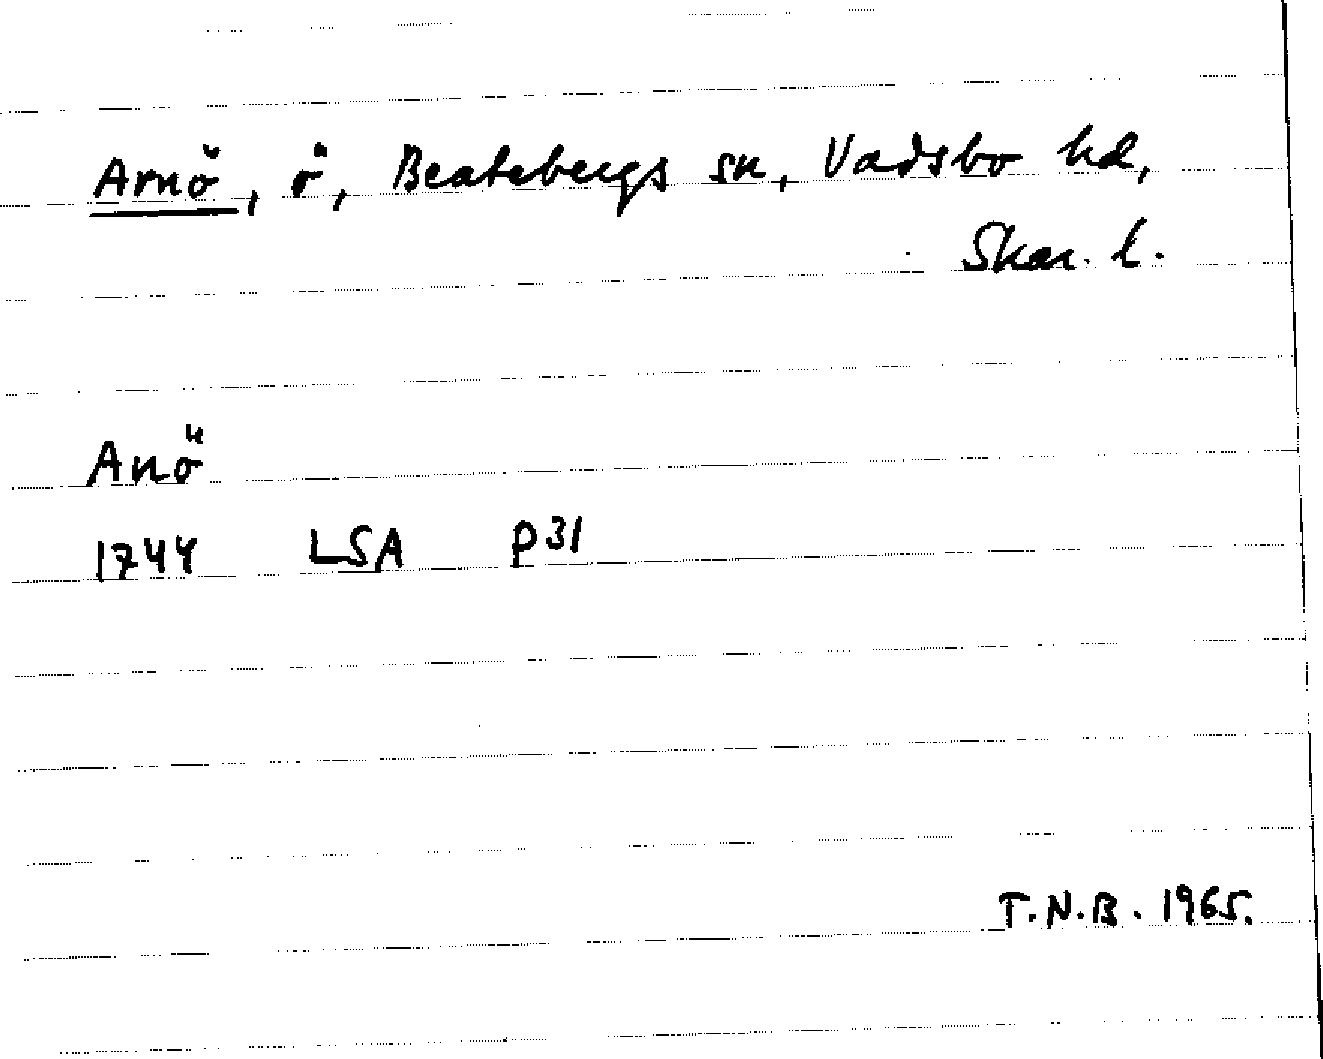 Arnö, ö, Beatebergs sn, Vadsbo hd,
Skar. l.
Anö
1744 LSA P31
T.N.B. 1965.